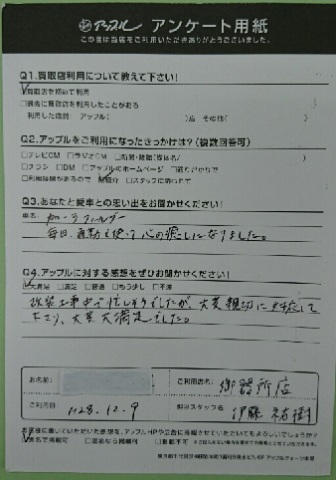 アップル アンケート用紙
この度は当店をご利用いただきありがとうございました。
Q1.買取店利用について教えて下さい!
買取店を初めて利用
□過去に買取店を利用したことがある
利用した店舗 アップル( )店 その他( )
Q2.アップルをご利用になったきっかけは?(複数回答可)
□テレビCM □ラジオCM □新聞・雑誌(媒体名 )
□チラシ □DM □アップルのホームページ □通りがかりで
□利用店舗があるので 紹介 □スタッフに誘われて
Q3.あなたと愛車との思い出をお聞かせください!
車名
カローラフィールダー
毎日、通勤で使って心の癒しになりました。
Q4.アップルに対する感想をぜひお聞かせください!
大満足 □満足 □普通 □もう少し □不満
改装工事中で忙しそうでしたが、大変親切に対応して
下さり、大変大満足でした。
お名前
ご利用店名 御器所店
ご利用日 H28.12.9
担当スタッフ名 伊藤 祐樹
お客様に書いていただいた感想を、アップルHPや広告に掲載させていただいてもよろしいでしょうか?